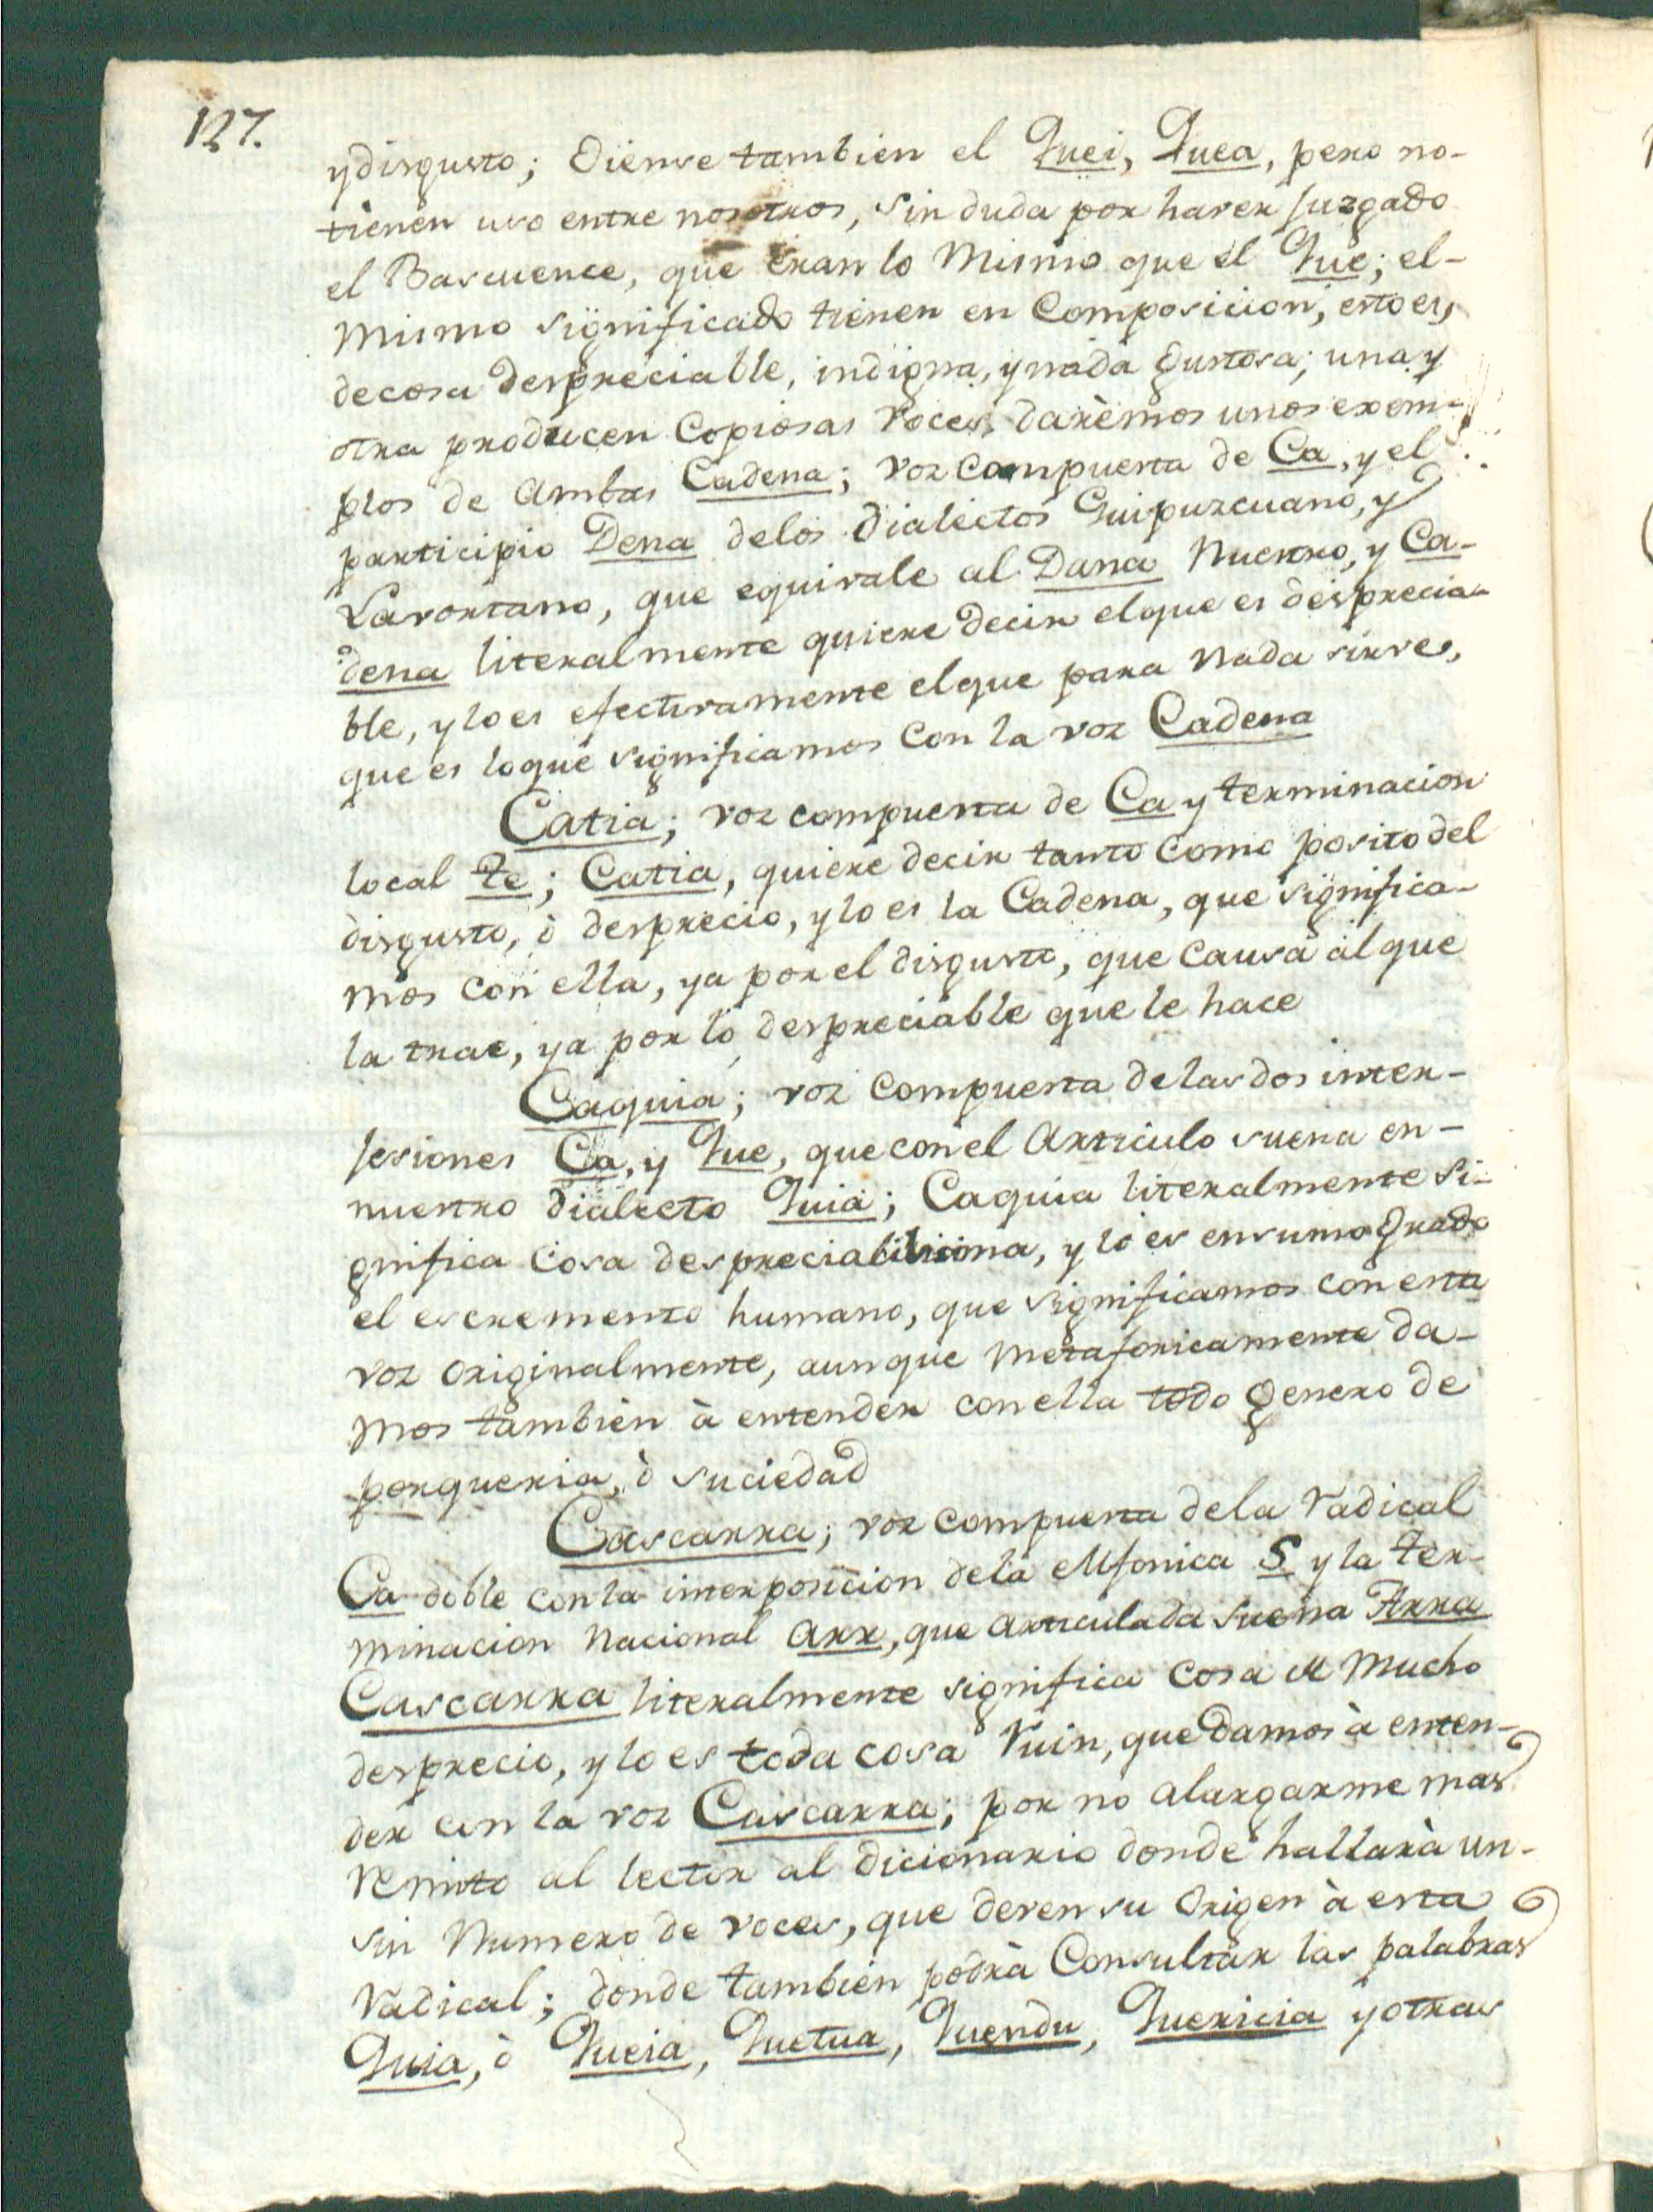 127.
y disgusto; Oiense tambien el Quei, Quea, pero no-
tienen uso entre nosotros, sin duda por haver juzgado
el Bascuence, que eran lo Mismo que el Que; el-
Mismo significado tienen en Composicion, esto es,
de cosa despreciable, indigna, y nada gustosa; una y
otra producen Copiosas Voces, darèmos unos exem-
plos de ambas Cadena; voz Compuesta de Ca, y el
participio Dena de los Dialectos Guipuzcuano, y
Lavortano, que equivale al Dana Nuestro, y Ca-
dena literalmente quiere decir el que es desprecia-
ble, y lo es efectivamente el que para Nada sirves,
que es lo que significamos con la voz Cadena
Catia; voz compuesta de Ca y terminacion
local te; Catia, quiere decir tanto Como posito del
disgusto, ò desprecio, y lo es la Cadena, que significa-
mos con ella, ya por el disgusto, que Causa al que
la trae, ya por lo despreciable que le hace
Caquia; voz Compuesta de las dos inter-
jesiones Ca, y Que, que con el Articulo suena en-
nuestro dialecto Quia; Caquia literalmente si-
gnifica Cosa despreciabilisima, y lo es en sumo Grado
el escremento humano, que significamos con esta
voz Originalmente, aunque Metaforicamente da-
mos tambien à entender con ella todo genero de
porqueria, ò suciedad
Cascarra; voz Compuesta de la Radical
Ca doble con la interposicion de la eufonica S y la ter-
minacion Nacional Arr, que articulada suena Arra
Cascarra literalmente significa Cosa de Mucho
desprecio, y lo es toda cosa Ruin, que Damos à enten-
der con la voz Cascarra; por no alargarme mas
remito al lector al dicionario donde hallarà un-
sin Numero de voces, que deven su Origen à esta
Radical; donde tambien podrà Consultar las palabras
Quia, ò Queia, Quetua, Quendu, Quericia y otras